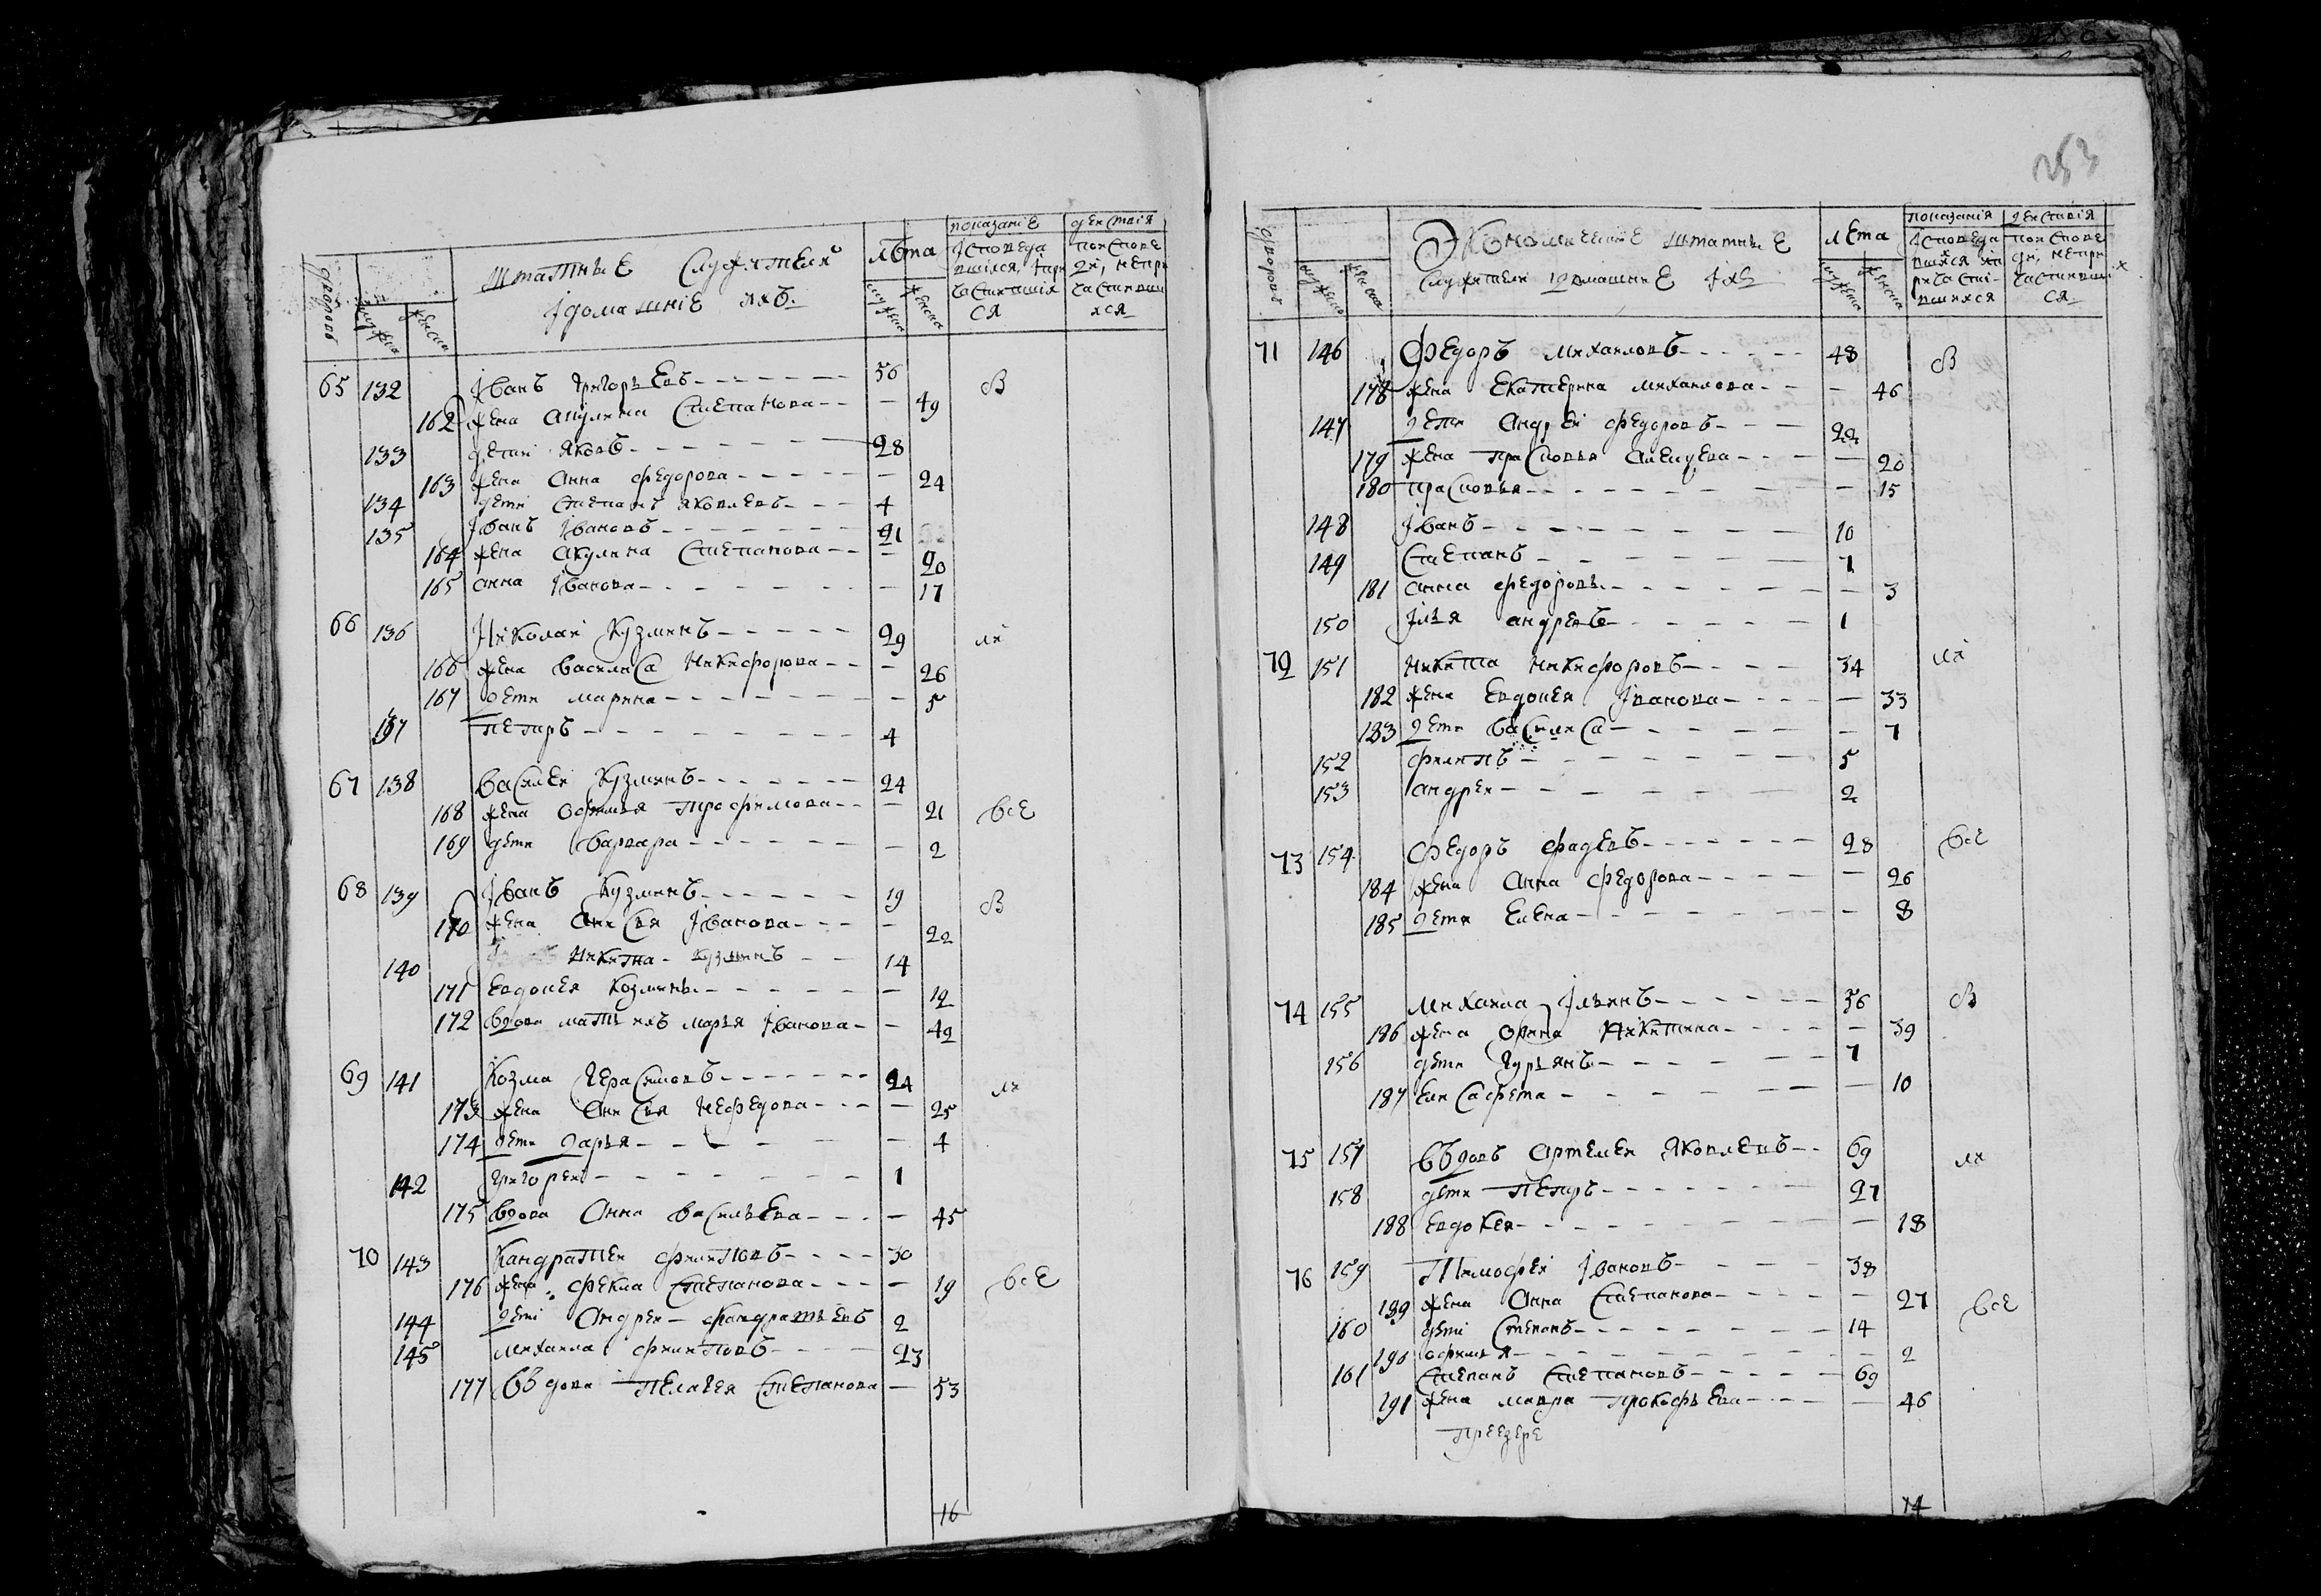 штатные служители
і домашніе ихъ.
лѣта
показаніе
дѣиствія
дворовъ
мужеска
женска
мужеска
женска
65 132 Іванъ Григорьевъ 56 в
162 жена Акулина Степанова 49
133 дети Яковъ 28
163 жена Анна Федорова 24
134 дети Степанъ Яковлевъ 4
135 Іванъ Івановъ 21
164 жена Акулина Степанова 20
165 Анна Іванова 17
66 136 Николаи Кузминъ 29 ли
166 жена Василиса Никифорова 26
167 дети Марина 5
137 Петръ 4
67 138 Василеи Кузминъ 24
168 жена Офимья Трофимова 21 все
169 дети Варвара 2
68 139 Іванъ Кузминъ 19 в
170 жена Анисья Іванова 22
140 Никита Кузминъ 14
171 Евдокея Козмина 12
172 вдова мать ихъ Марья Іванова 49
69 141 Козма Герасимовъ 24 ли
173 жена Анисья Нефедова 25
174 дети Дарья 4
142 Григореи 1
175 вдова Анна Васильева 45
70 143 Кандратеи Филиповъ 30
176 жена Фекла Степанова 19 все
144 дети Андреи Кандратьевъ 2
145 Михаила Филиповъ 23
177 въдова Пелагея Степанова 53
16
253
Экономические штатные
служители и домашние іхъ
лета
показанія
деиствія
дворовъ
мужеска
женска
мужеска
женска
71 146 Федоръ Михаиловъ 48 в
178 жена Екатерина Михаилова 46
147 дети Андреи Федоровъ 22
179 жена Прасковья Алексеева 20
180 Прасковья 15
148 Іванъ 10
149 Степанъ 7
181 Анна Федорова 3
150 Ілья Андревъ 1
72 151 Никита Никифоровъ 34 ли
182 жена Евдокея Іванова 33
183 дети Василиса 7
152 Филипъ 5
153 Андреи 2
73 154 Федоръ Фадеевъ 28 все
184 жена Анна Федорова 26
185 дети Елена 8
74 155 Михаила Ільинъ 36 в
186 жена Орина Никитина 39
156 дети Гурьянъ 7
187 Елисафета 10
75 157 въдовъ Артемеи Яковлевъ 69 ли
158 дети Петръ 27
188 Евдокея 18
76 159 Тимофеи Івановъ 38
189 жена Анна Степанова 27 все
160 дети Степанъ 14
190 Офимья 2
161 Степанъ Степановъ 69
191 жена Мавра Прокофьева 46
14